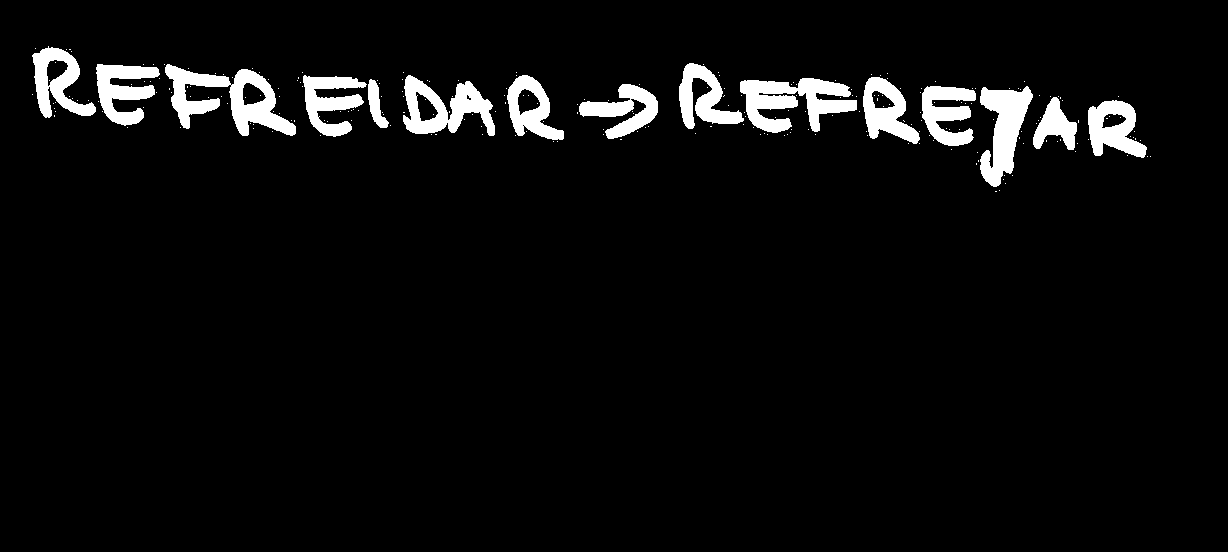 REFREIDAR → REFREJAR